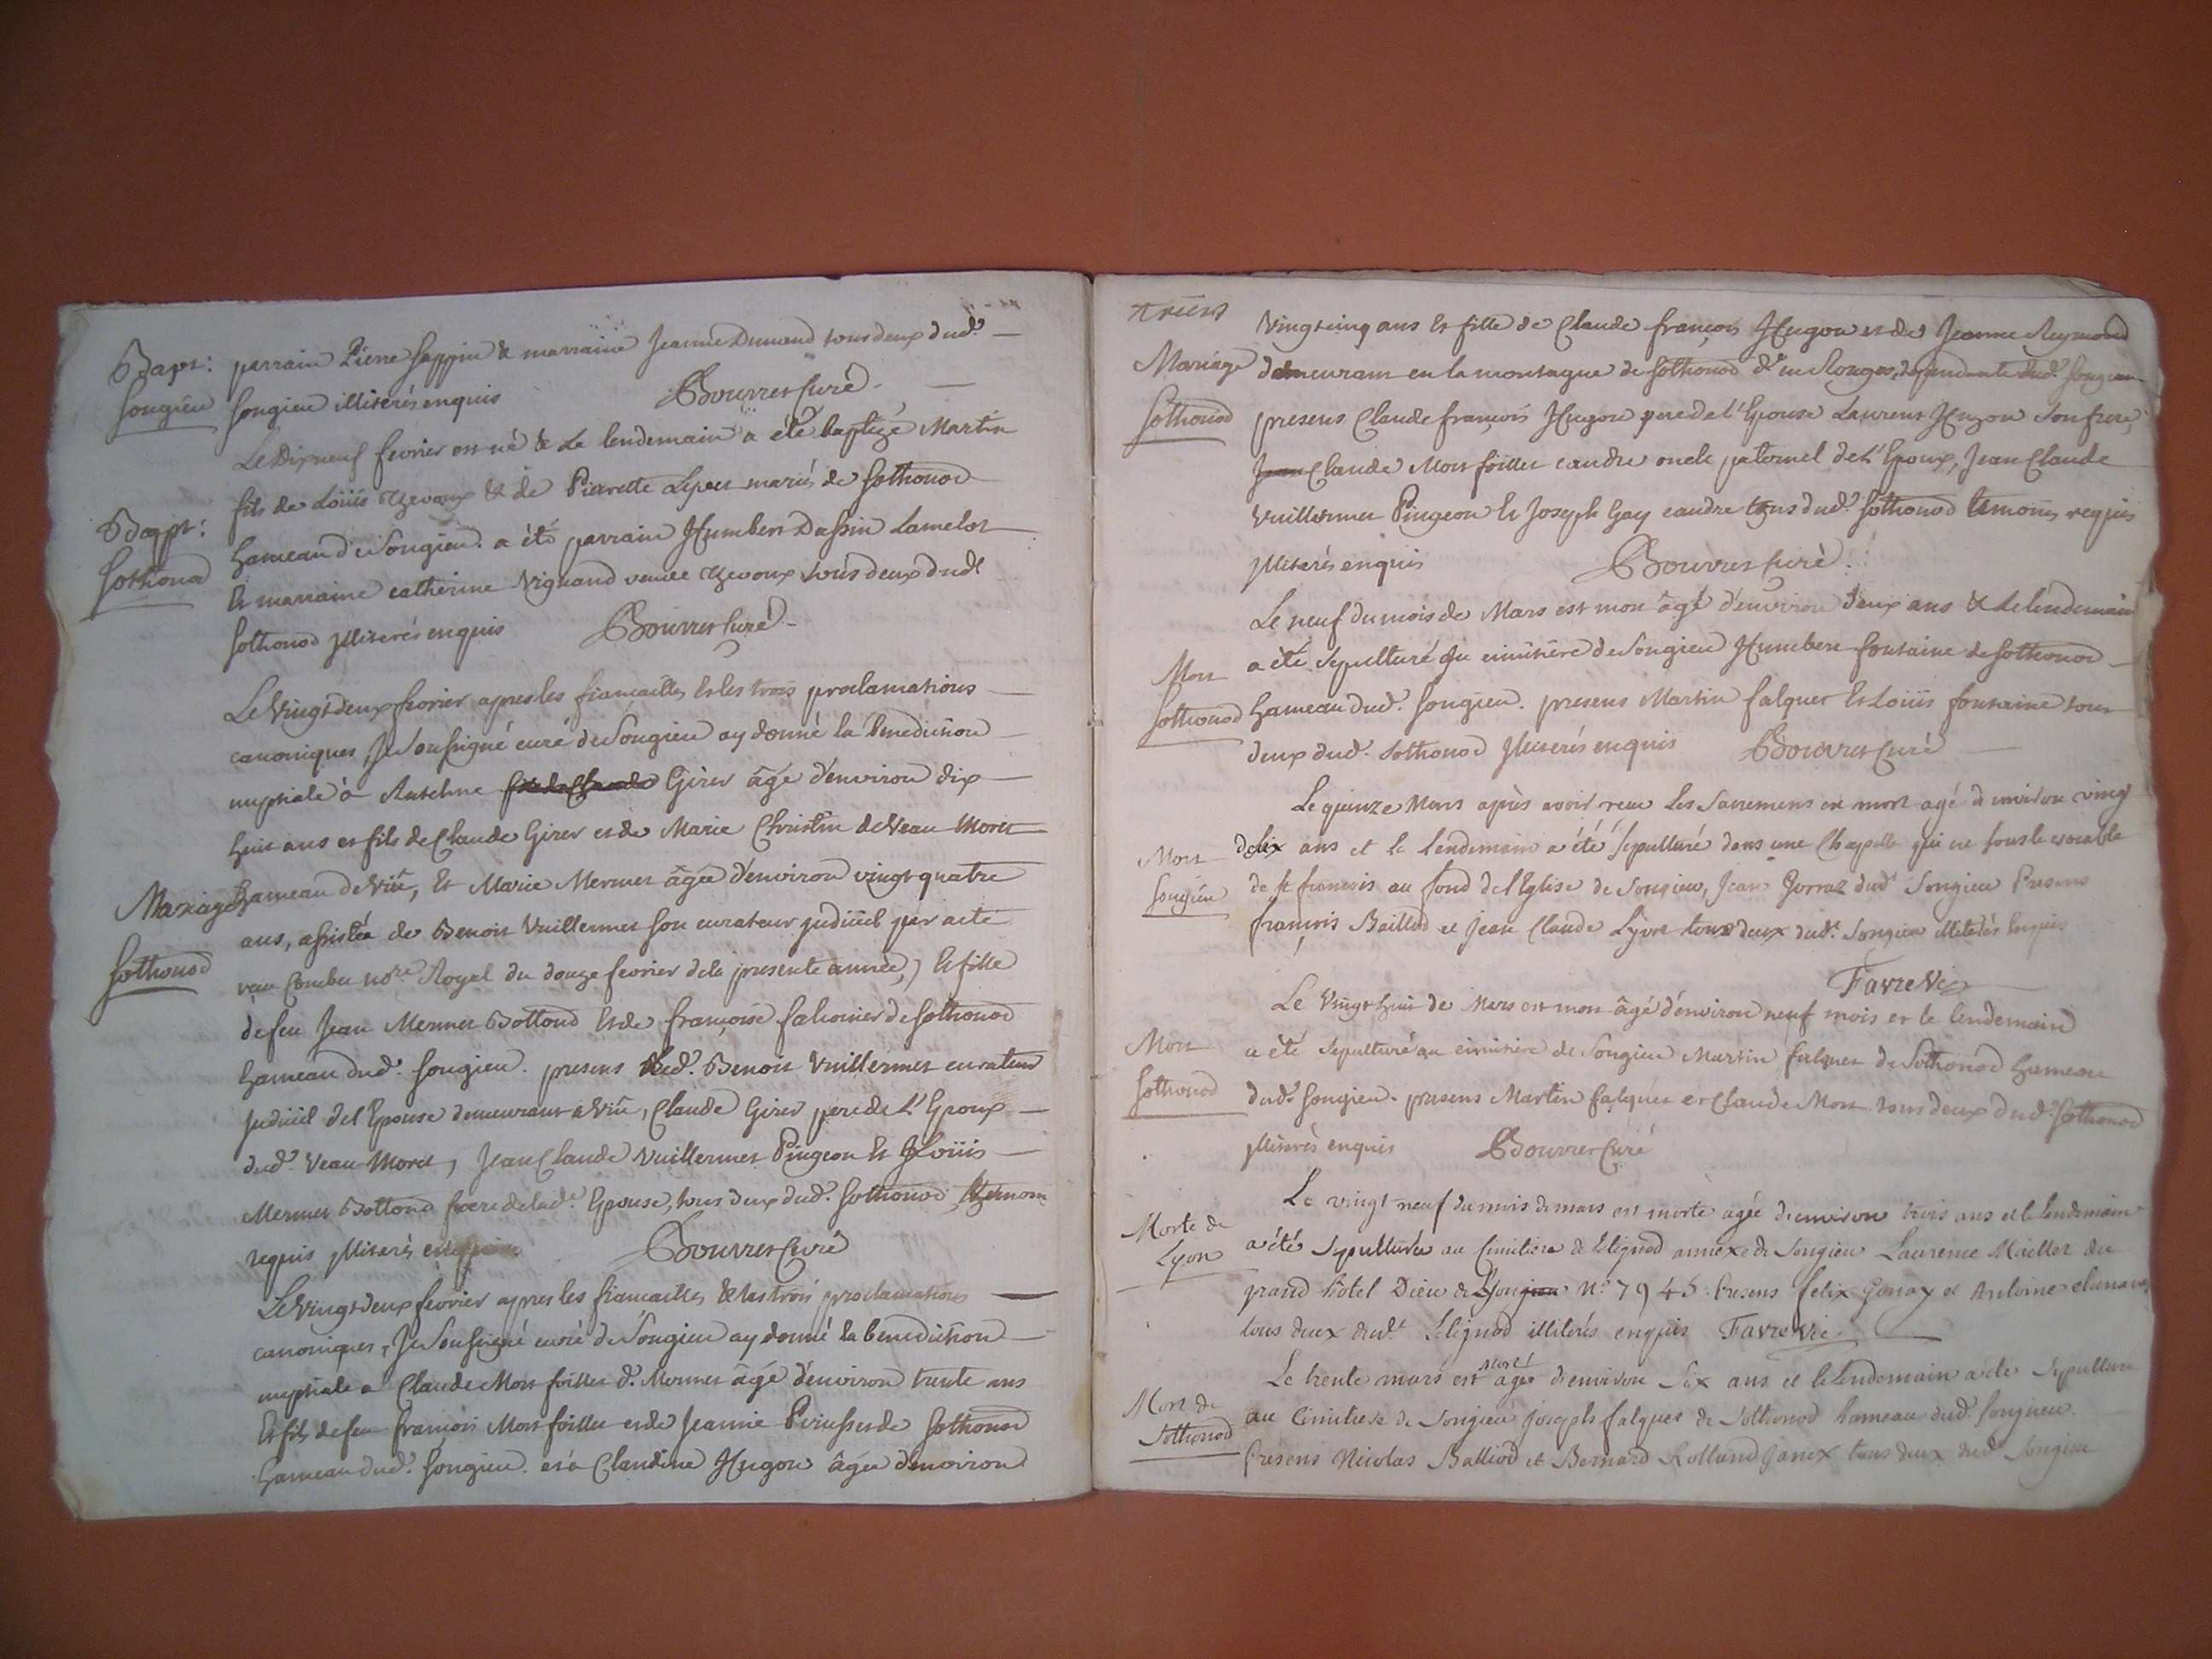 Bapt:
Songieu
perrain Pierre Sappin & marraine Jeanne Dumond tous deux dud.
Songieu illiterés enquis Bouvret Curé.
Bapt:
Sothonod
Le Dix neuf fevrier est né & Le lendemain a été baptizé Martin
fils de Loüis Thevoux & de Pierrette Lyvet mariés de Sothonod
hameau de Songieu. a été parrain Humbert Dassin Lamelot
Et marraine catherine Vignand veuve Thevoux tous deux dud.
Sothonod illiterés enquis Bouvret Curé.
Mariage
Sothonod
Le Vingt deux fevrier apres les fiancailles Et les trois proclamations
canoniques, Je Soussigné curé de Songieu ay donné la benediction
nuptiale à Anthelme Girer âgé d'environ dix
huit ans et fils de Claude Girer et de Marie Christin de Veau Moret
hameau de Viu, Et Marie Mermet âgée d'environ vingt quatre
ans, assistée de Benoit Vuillermet son curateur judiciel par acte
reçu Combet no.re Royal du douze fevrier de la presente année, Et fille
de feu Jean Mermet Bottond Et de françoise falconier de Sothonod
hameau dud. Songieu. presens led. Benoit Vuillermet curateur
judiciel de l'Epouse demeurant à Viu, Claude Girer pere de L'Epoux
dud. Veau Moret, Jean Claude Vuillermet Pingeon Et Loüis
Mermet Bottond frere de lad. Epouse, tous deux dud. Sothonod, témoins
requis illiterés enquis Bouvret Curé
Le Vingt deux fevrier apres les fiancailles & les trois proclamations
canoniques, Je Soussigné curé de Songieu ay donné la benediction
nuptiale a Claude Mort foillet d. Mermet âgé d'environ trente ans
Et fils de feu francois Mort foillet et de Jeanne de Sothonod
hameau dud. Songieu. et à Claudine Hugon âgée d'environ
Mariage
Sothonod
Vingt cinq ans Et fille de Claude françois Hugon et de Jeanne Reymond
demeurant en la montagne de Sothonod d. en Ronges, dependante dud. Songieu
presens Claude françois Hugon pere de l'Epouse Laurent Hugon Son frere,
Jean Claude Mort foillet caudre oncle paternel de L'Epoux, Jean Claude
Vuillermet Pingeon Et Joseph Gay caudre tous dud. Sothonod temoins requis
illiterés enquis Bouvret Curé.
Mort
Sothonod
Le neuf du mois de Mars est mort âgé d'environ deux ans & Le lendemain
a été sepulturé au cimitière de Songieu Humbert fontaine de Sothonod
hameau dud. Songieu. presens Martin falquet Et Loüis fontaine tous
deux dud. Sothonod illiterés enquis Bouvret Curé
Mort
Songieu
Le quinze Mars après avoir reçu Les Sacremens est mort agé d'environ vingt
dix ans et le lendemain a été sepulturé dans une Chapelle qui est sous le vocable
de st francois au fond de l'Eglise de Songieu, Jean Jorraz dud. Songieu Presens
françois Baillod et Jean Claude Lyvet tous deux dud. Songieu illiterés enquis
Favre Vic
Mort
Sothonod
Le Vingt huit de Mars est mort âgé d'environ neuf mois et le lendemain
a été sepulturé au cimitière de Songieu Martin falquet de Sothonod hameau
dud. Songieu. presens Martin falquet et Claude Mort tous deux dud. Sothonod
illiterés enquis Bouvret Curé
Morte de
Lyon
Le vingt neuf du mois de mars est morte agée d'environ trois ans et le lendemain
a été sepulturée au Cimitiere de Lilignod annexe de Songieu Laurence Maillet du
grand hôtel Dieu de Lyon No. 7945. Presens felix Gonay et Antoine
tous deux dud. Lilignod illiterés enquis Favre Vic.
Mort de
Sothonod
Le trente mars est mort agé d'environ six ans et le lendemain a été sepulturé
au Cimitiere de Songieu joseph falquet de Sothonod hameau dud. Songieu.
Presens Nicolas Balliod et Bernard Rolland Janex tous deux dud. Songieu